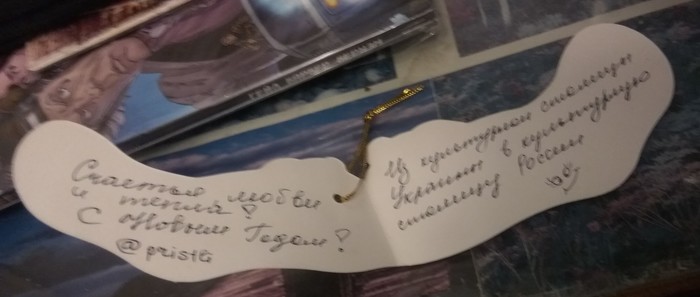 Счастья любви
и тепла!
С Новым Годом!
@pristli
Из культурной столицы
Украины в культурную
столицу России